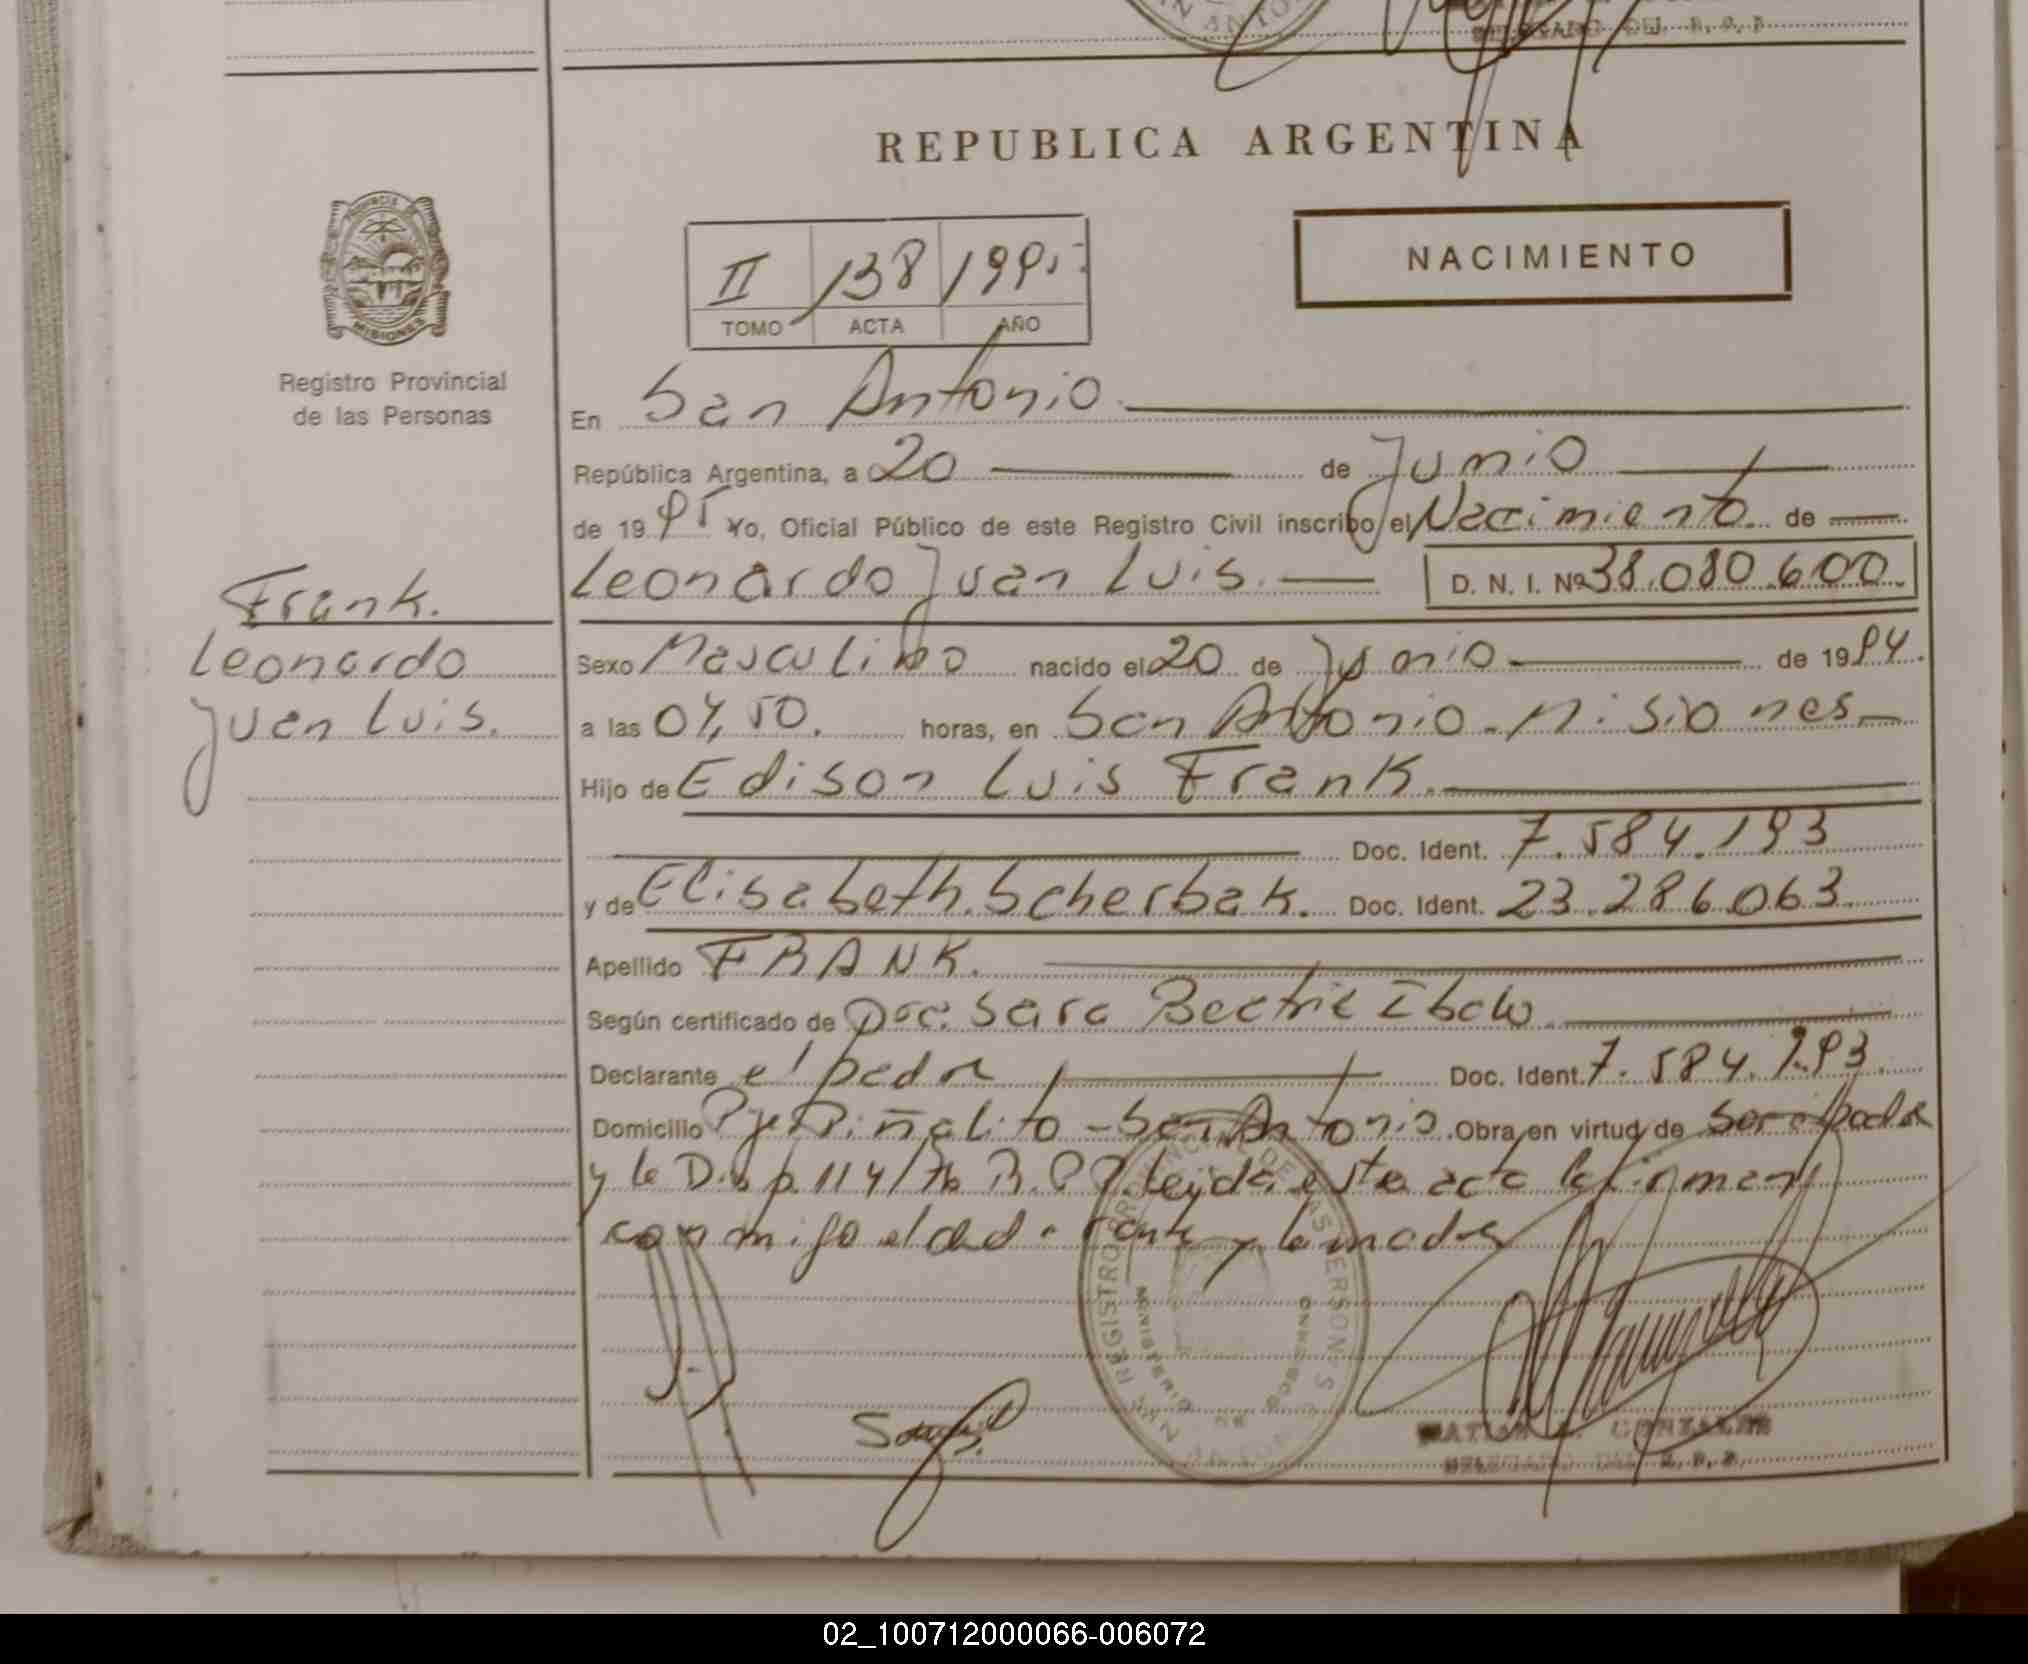 REPUBLICA ARGENTINA
II 138 1995
TOMO ACTA AÑO
NACIMIENTO
PROVINCIA DE
MISIONES
Registro Provincial
de las Personas
En San Antonio
República Argentina, a 20 de Junio
de 1995 Yo, Oficial Público de este Registro Civil inscribo el Nacimiento de
Leonardo Juan Luis. D. N. I. Nº 38.080.600
Frank.
Leonardo
Juan Luis.
Sexo Masculino nacido el 20 de Junio de 1994.
a las 04,50. horas, en San Antonio - Misiones
Hijo de Edison Luis Frank.
Doc. Ident. 7.584.193
y de Elisabeth Scherbak. Doc. Ident. 23.286.063
Apellido FRANK.
Según certificado de Doc. Sara Beatriz
Declarante el padre Doc. Ident. 7.584.193.
Domicilio Pje Piñalito - San Antonio. Obra en virtud de ser el padre
y la Disp. 114/76 R.P.P. leída este acta la firman
conmigo el declarante y la madre
REGISTRO PROVINCIAL DE LAS PERSONAS
MINISTERIO DE GOBIERNO
SAN ANTONIO
GONZALEZ
DELEGADO DEL R.P.P.
02_100712000066-006072